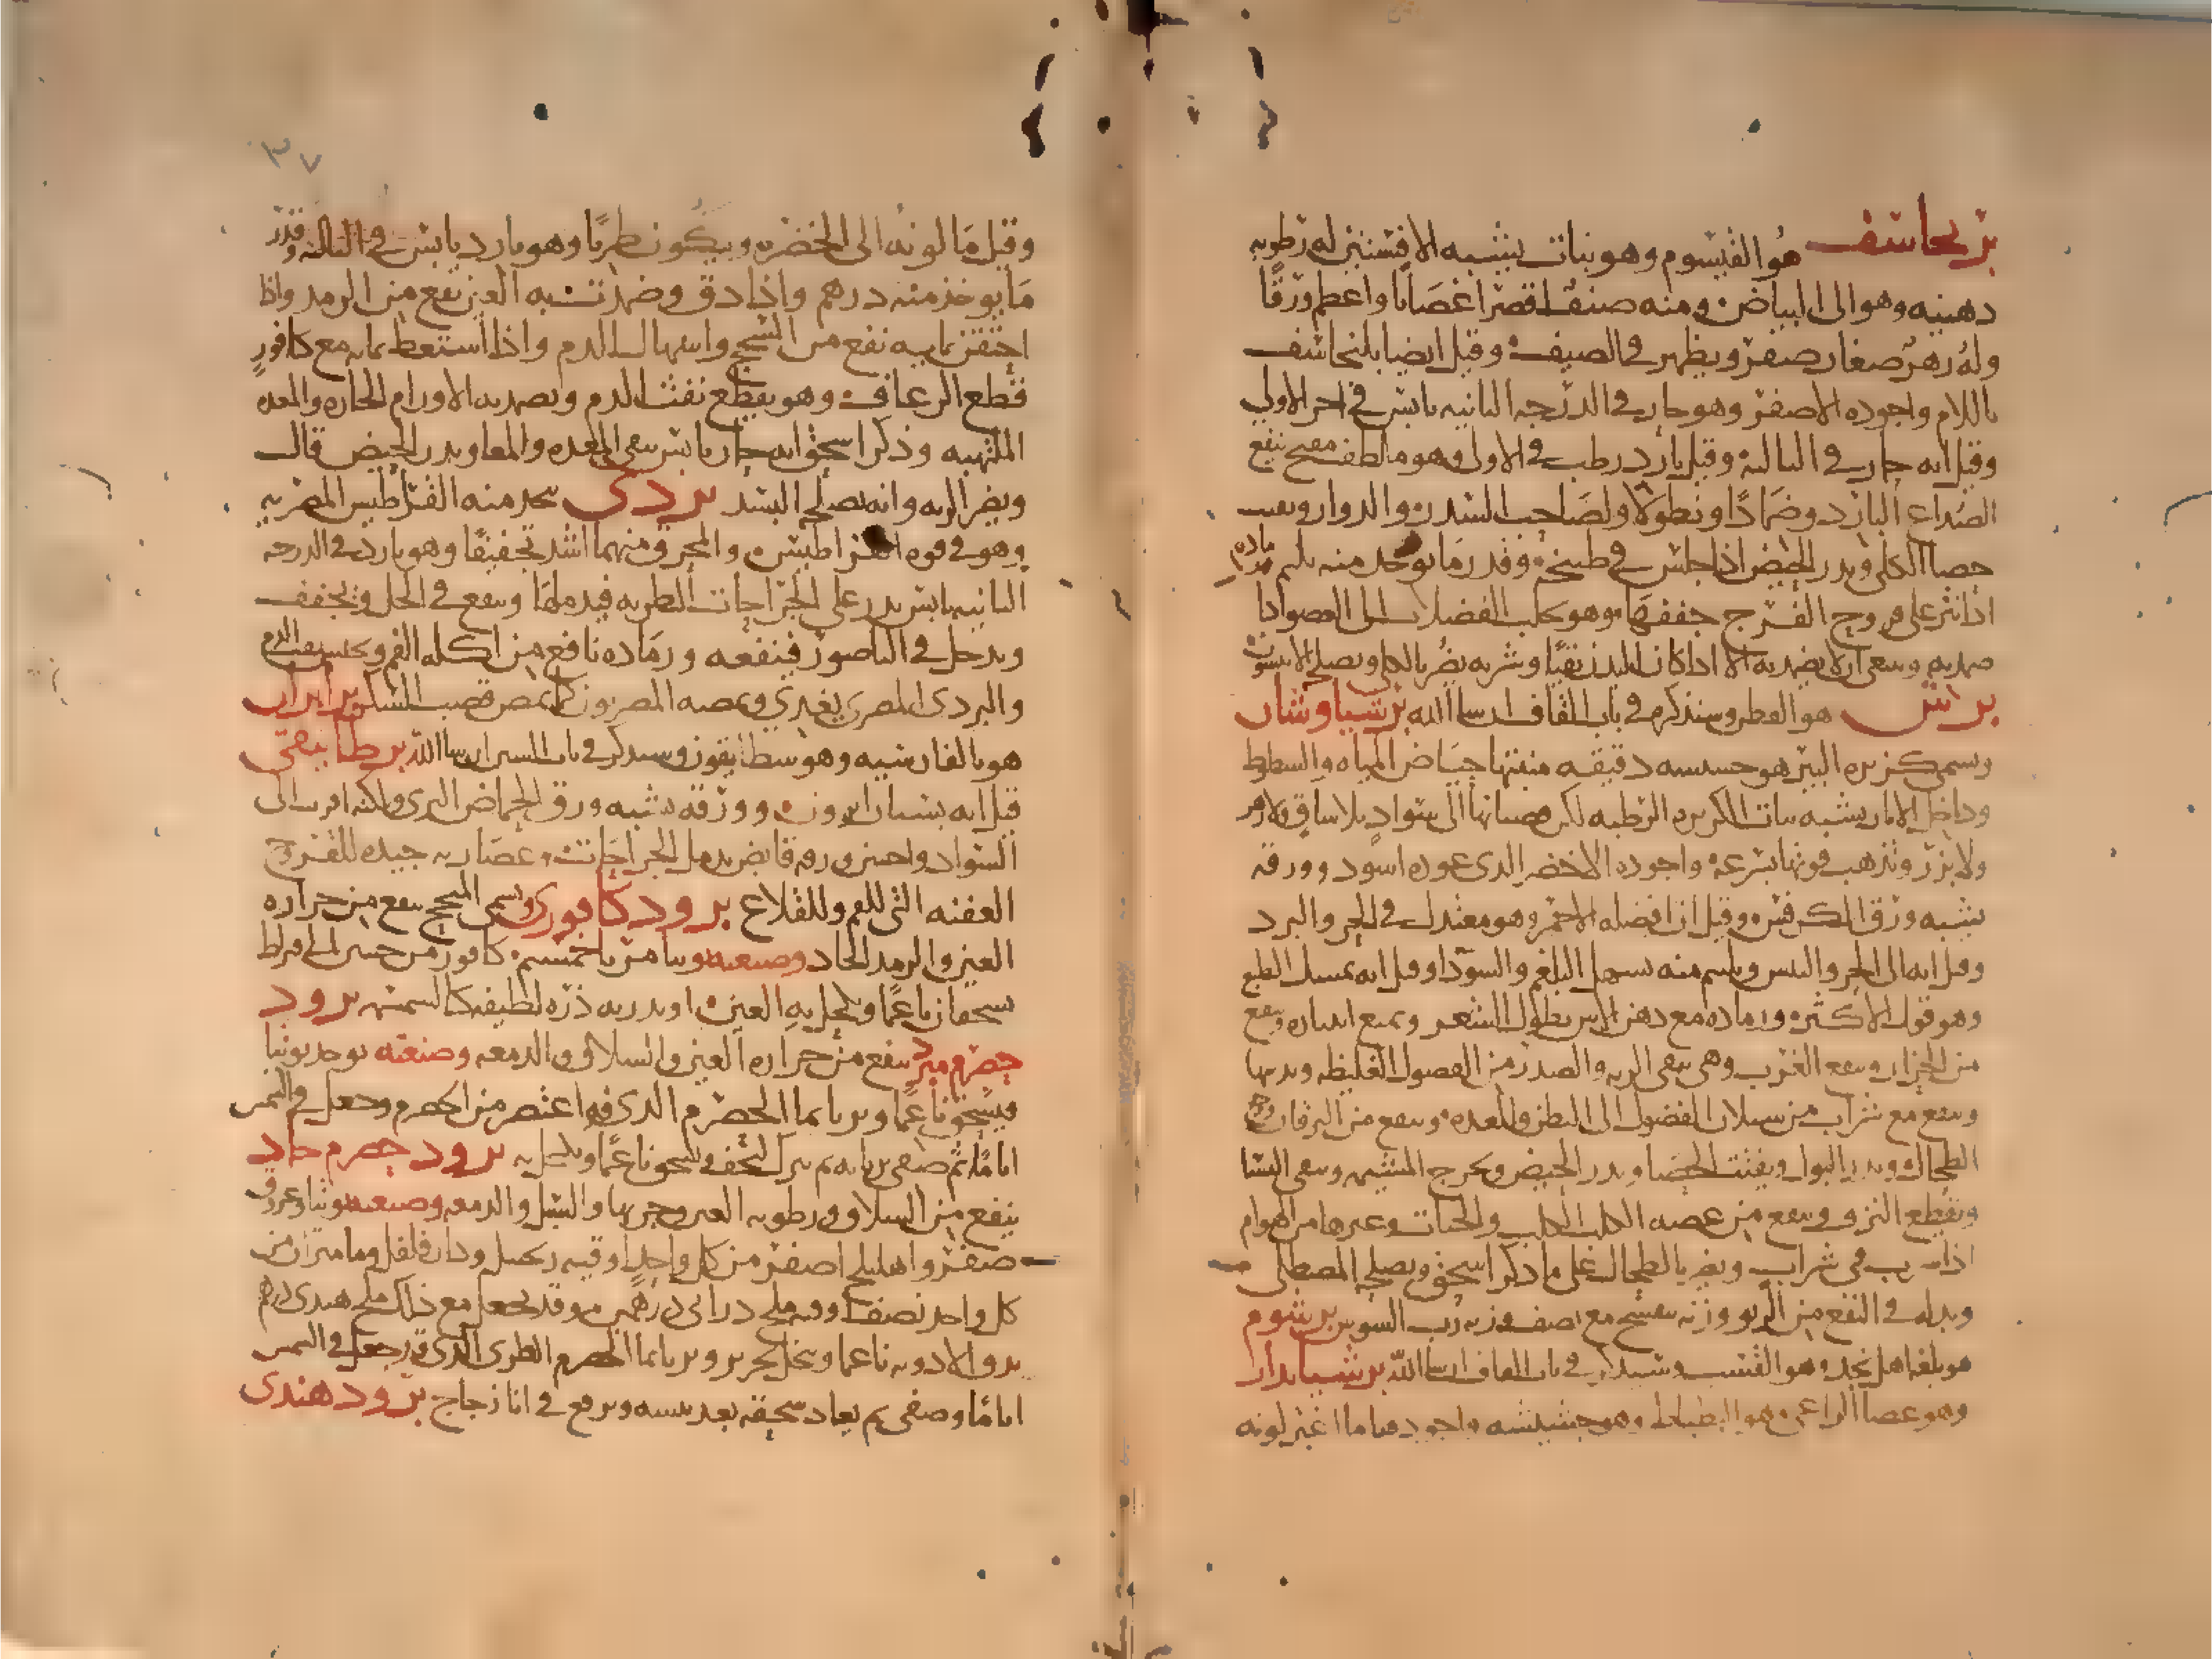 برنجاسف هو القيسوم وهو نبات يشبه الافسنتين له رطوبه
دهنيه وهو الى البياض ومنه صنف اقصر اغصانا واعظم ورقا
وله زهر صغار صفر ويظهر في الصيف وقيل ايضا بلنجاسف
باللام واجوده الاصفر وهو حار في الدرجه الثانيه يابس في اخر الاولى
وقيل انه حار في الثالثه وقيل بارد رطب في الاولى وهو ملطف مفتح ينفع
الصداع البارد ضمادا ونطولا ولصاحب السدر والدوار ويفتت
حصا الكلى ويدر الحيض اذا جلس في طبيخه وقدر ما يوخذ منه
اذا نثر على قروح الفرج جففها وهو يجلب الفضلات الى العضو اذا
ضمد به وينبغي ان لا يضمد به الا اذا كان البدن نقيا وشربه يضر بالكلى ويصلحه الانيسون
هو القطر وسنذكره في باب القاف ان شا الله برشياوشان
ويسمى كزبره البير هو حشيشه دقيقه منبتها حياض المياه والشطوط
وداخل الابار يشبه نبات الكزبره الرطبه لكن قضبانها الى سواد بلا ساق ولا زهر
ولا بزر وتذهب قوتها بسرعه واجوده الاخضر الذي عوده اسود وورقه
يشبه ورق الكرفس وقيل ان افضله الاحمر وهو معتدل في الحر والبرد
وقيل انه الى الحر واليبس وباسم منه يسهل البلغم والسودا وقيل انه يمسك الطبع
وهو قول الاكثر ورماده مع دهن الاس يطول الشعر ويمنع انتثاره وينفع
من الحزاز وينفع الغرب وهي تنقي الريه والصدر من الفضول الغليظه
وينفع مع شراب من سيلان الفضول الى البطن والمعده وينفع من اليرقان
الطحال ويدر البول ويفتت الحصا ويدر الحيض ويخرج المشيمه وينقي النسا
ويقطع النزف وينفع من عضه الكلب الكلب والحيات وغيرها من الهوام
اذا شرب في شراب ويضر بالطحال على ما ذكر اسحق ويصلحه المصطكى
وبدله في النفع من الربو وزنه بنفسج مع نصف وزنه رب السوس برشوم
هو بلغه اهل نجد وهو القسب وسنذكره في باب القاف ان شا الله برشياندار
وهو عصا الراعي وهو البطباط وهو حشيشه واجوده ما اغبر لونه
٣٧
وقيل ما لونه الى الخضره ويكون طريا وهو بارد يابس في الثالثه وقدر
ما يوخذ منه درهم واذا دق وضمدت به العين نفع من الرمد واذا
احتقن بمايه نفع من السحج واسهال الدم واذا استعط بمايه مع كافور
قطع الرعاف وهو يقطع نفث الدم ويضمد به الاورام الحاره والمعده
الملتهبه وذكر اسحق انه حار يابس ينقي المعده والمعا ويدر الحيض قال
ويضر الريه وانه يصلحه البسد بردي يتخذ منه القراطيس المصريه
وهو في قوه القراطيس والمحرق منهما اشد تجفيفا وهو بارد في الدرجه
الثانيه يابس يذر على الجراحات الطريه فيدملها وينقع في الخل ويجفف
ويدخل في الناصور فينفعه ورماده نافع من اكله الفم ويحبس نفث الدم
والبردي المصري يغذي ويمصه المصريون كما يمص قصب السكر برابران
هو بالفارسيه وهو سطايقون وسنذكر في باب السين ان شا الله برطانيقي
قيل انه بستان ابروز وورقه يشبه ورق الحماض البري ولكنه اقرب الى
السواد واحسن ورقه قابض يدمل الجراحات وعصارته جيده للقروح
العفنه التي للفم وللقلاع برود كافوري ويسمى المبهج ينفع من حراره
العين والرمد الحاد وصنعته توتيا مرباه خمسه كافور من حبتين الى قيراط
يسحقان ناعما ويكحل به العين او يذر به ذره لطيفه كالسمسمه برود
حصرم مبرد ينفع من حراره العين والسلاق والدمعه وصنعته يوخذ توتيا
فيسحق ناعما ويربا بما الحصرم الذي قد اعتصر من الحصرم وجعل في الشمس
اياما ثم صفي يربا به ثم يترك ليجف ويسحق ناعما ويكحل به برود حصرم حاد
ينفع من السلاق ورطوبه العين وجربها والسبل والدمعه وصنعته توتيا وعروق
صفر واهليلج اصفر من كل واحد اوقيه زنجبيل ودارفلفل وماميران من
كل واحد نصف اوقيه ملح دراني درهمين وقد يجعل مع ذلك ملح هندي درهم
يدق الادويه ناعما وينخل بحرير ويربا بما الحصرم الطري الذي قد جعل في الشمس
اياما وصفي ثم يعاد سحقه بعد يبسه ويرفع في انا زجاج برود هندي